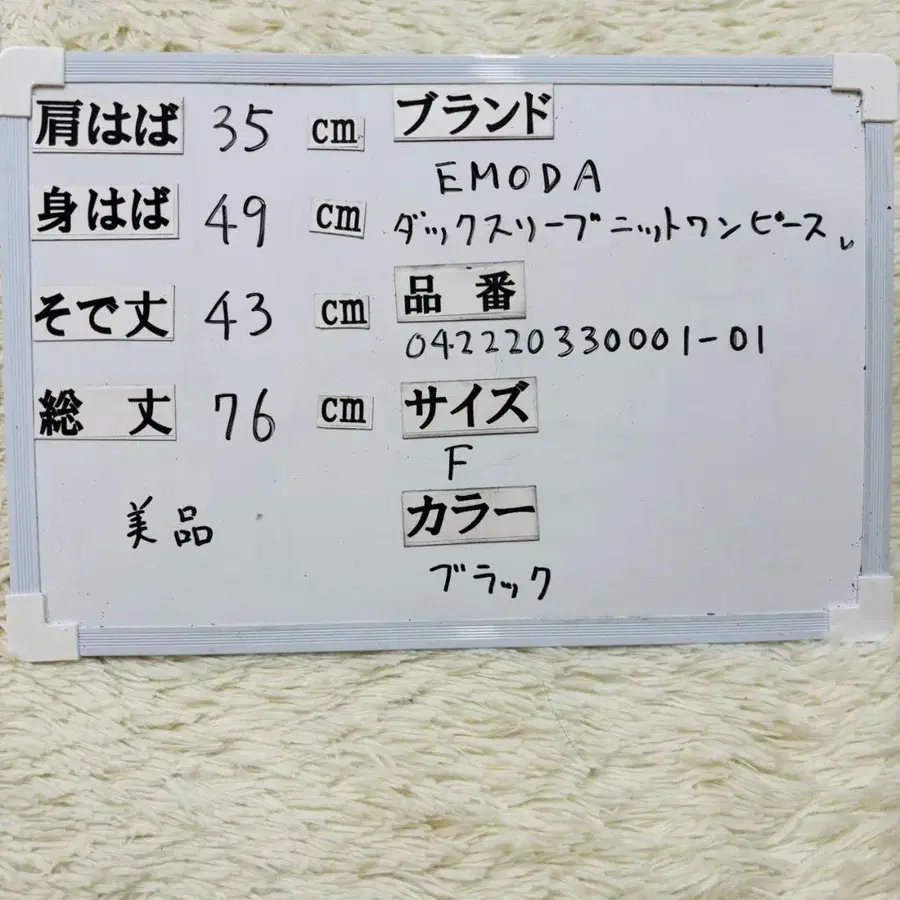 肩はば 35 cm
身はば 49 cm
そで丈 43 cm
総 丈 76 cm
美品
ブランド
EMODA
ダックスリーブニットワンピース
品 番
042220330001-01
サイズ
F
カラー
ブラック